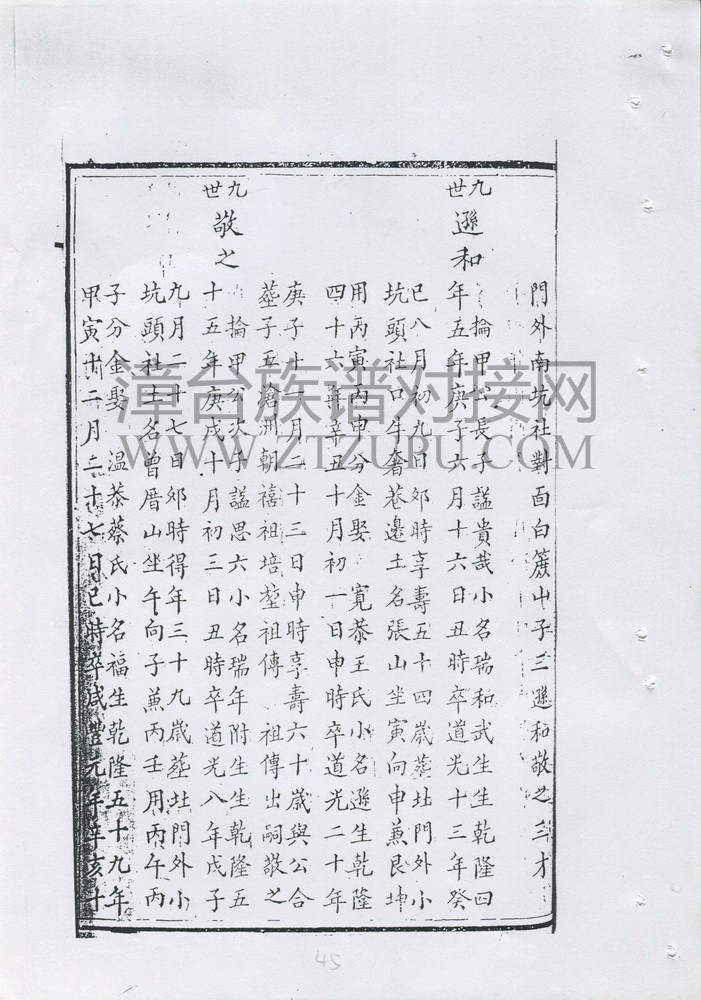 門外南坑社對面白蔗山子三遜和敬之三才
九世
遜和
掄甲公長子諡貴哉小名瑞和武生生乾隆四
年五年庚子六月十六日丑時卒道光十三年癸
巳八月初九日卯時享壽五十四歲葬址門外小
坑頭社口牛奢巷邊土名張山坐寅向申兼艮坤
用丙寅丙申分金娶 寬恭王氏小名遜生乾隆
四十六年辛丑十月初一日申時卒道光二十年
庚子十一月二十三日申時享壽六十歲與公合
塟子五滄洲朝禧祖培 祖傳 祖傳出嗣敬之
九世
敬之
掄甲公次子諡思六小名瑞年附生生乾隆五
十五年庚戌十月初三日丑時卒道光八年戊子
九月二十七日卯時得年三十九歲塟址門外小
坑頭社土名曾厝山坐午向子兼丙壬用丙午丙
子分金娶 溫恭蔡氏小名福生乾隆五十九年
甲寅十二月二十七日巳時卒咸豐元年辛亥十
漳台族谱对接网
WWW.ZTZUPU.COM
45